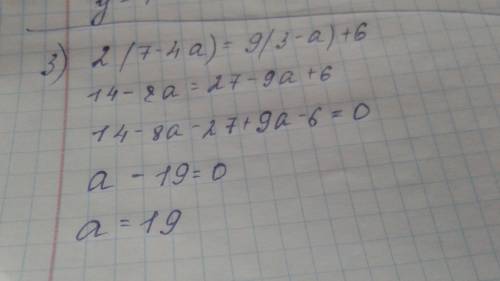 3) 2(7-4a)= 9(3-a)+6
14-8a = 27-9a+6
14-8a-27+9a-6=0
a - 19=0
a = 19